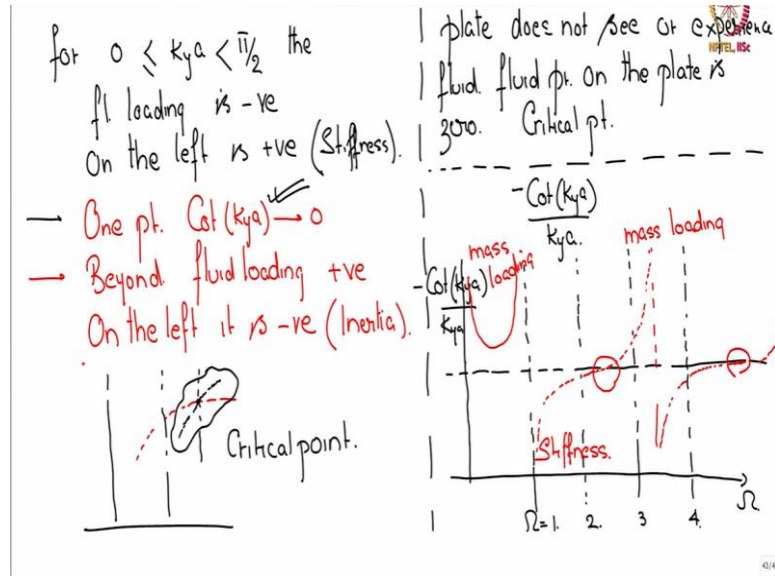 for 0 ≤ kya < π/2 the
fl. loading is -ve
On the left is +ve (Stiffness).
→ One pt. Cot(kya) → 0
→ Beyond fluid loading +ve
On the left it is -ve (Inertia).
Critical point.
plate does not see or experience
fluid. fluid pr. on the plate is
zero. Critical pt.
NPTEL, IISc
-Cot(kya)
kya.
mass
loading
mass loading
-Cot(kya)
kya
Stiffness.
Ω
Ω=1. 2. 3 4.
43/4